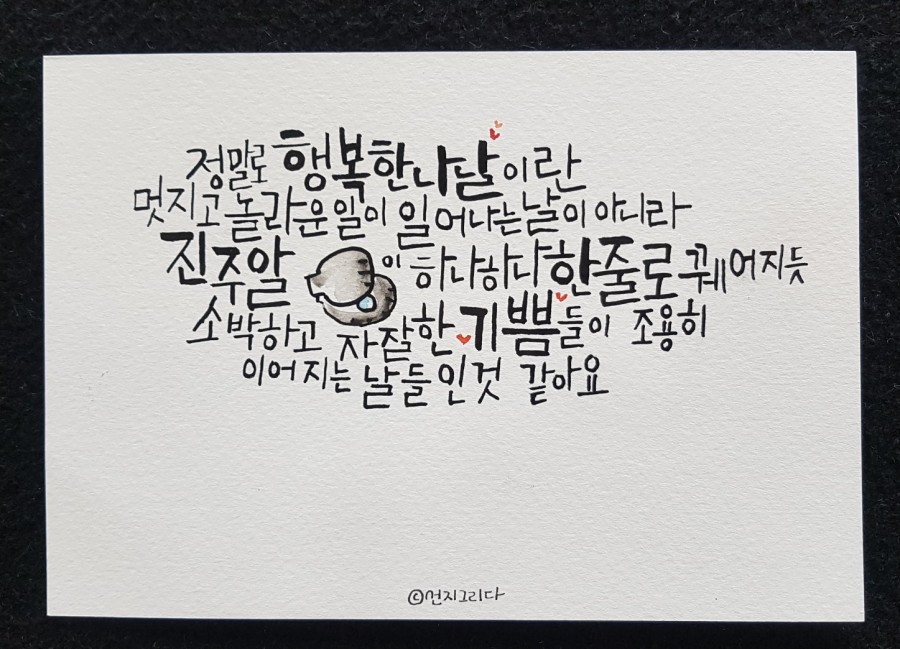 정말로 행복한 나날이란
멋지고 놀라운 일이 일어나는 날이 아니라
진주알이 하나하나 한줄로 꿰어지듯
소박하고 자잘한 기쁨들이 조용히
이어지는 날들인 것 같아요
©언지그리다